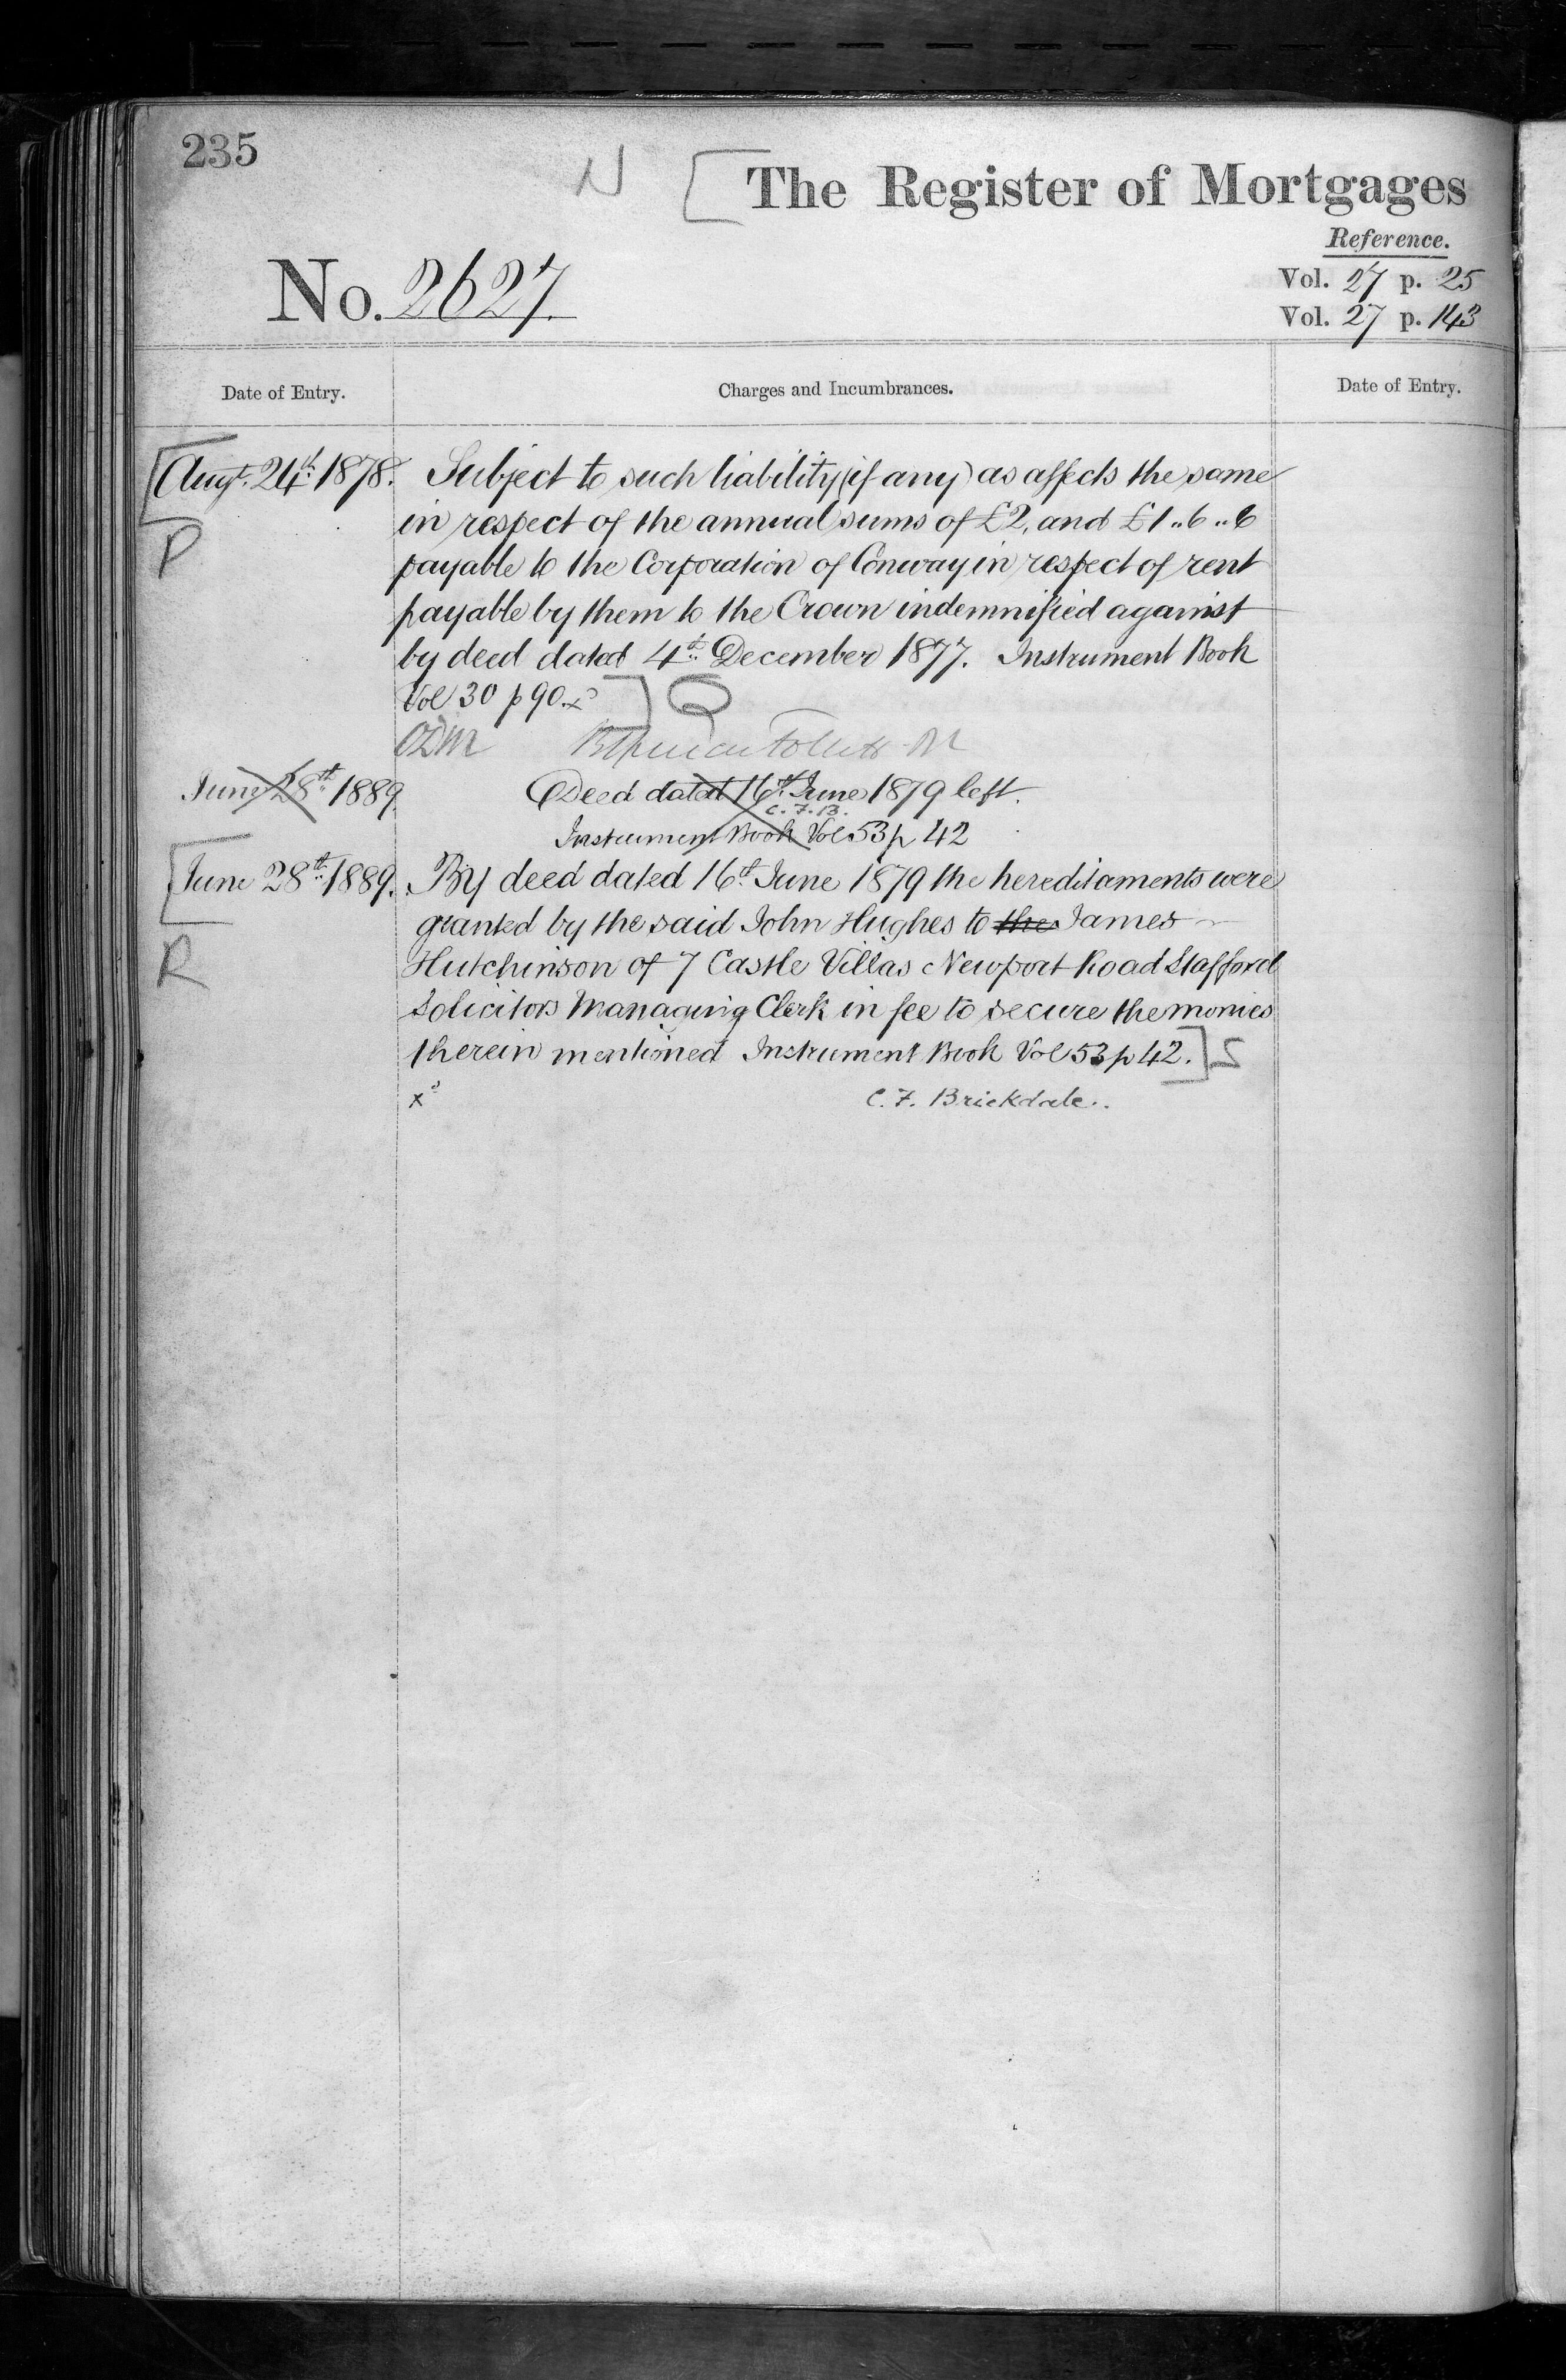 235
N [ The Register of Mortgages
Reference.
No. 2627.
Vol. 27 p. 25
Vol. 27 p. 143
Date of Entry. Charges and Incumbrances. Date of Entry.
[Augt. 24th 1878. Subject to such liability (if any) as affects the same
in respect of the annual sums of £2, and £1..6..6
P
payable to the Corporation of Conway in respect of rent
payable by them to the Crown indemnified against
by deed dated 4th December 1877. Instrument Book
Vol 30 p 90. x ] Q
June 28th 1889. Deed dated 16th June 1879 left.
C.F.B.
Instrument Book Vol 53 p 42
[June 28th 1889. By deed dated 16th June 1879 the hereditaments were
granted by the said John Hughes to the James
R
Hutchinson of 7 Castle Villas Newport Road Stafford
Solicitors Managing Clerk in fee to secure the monies
therein mentioned Instrument Book Vol 53 p 42. ] S
x C. F. Brickdale.